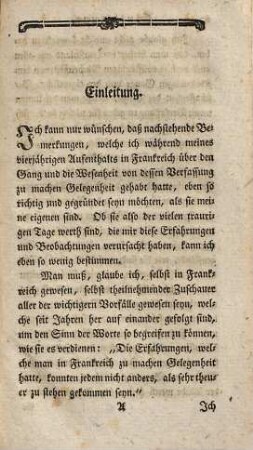 Einleitung.
Ich kann nur wünschen, daß nachstehende Be-
merkungen, welche ich während meines
vierjährigen Aufenthaltes in Frankreich über den
Gang und die Wesenheit von dessen Verfassung
zu machen Gelegenheit gehabt hatte, eben so
richtig und gegründet seyn möchten, als sie mei-
ne eigenen sind. Ob sie also der vielen trauri-
gen Tage werth sind, die mir diese Erfahrungen
und Beobachtungen verursacht haben, kann ich
eben so wenig bestimmen.
Man muß, glaube ich, selbst in Frank-
reich gewesen, selbst theilnehmender Zuschauer
aller der wichtigern Vorfälle gewesen seyn, wel-
che seit Jahren her auf einander gefolgt sind,
um den Sinn der Worte so begreifen zu können,
wie sie es verdienen: „Die Erfahrungen, wel-
che man in Frankreich zu machen Gelegenheit
hatte, konnten jedem nicht anders, als sehr theu-
er zu stehen gekommen seyn.“
A Ich